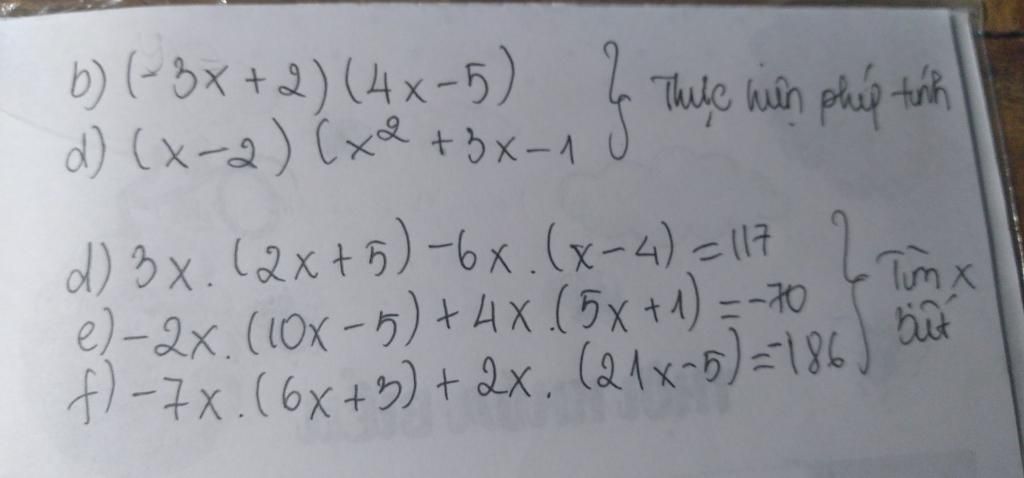 b) (-3x+2)(4x-5)
d) (x-2)(x²+3x-1
Thực hiện phép tính
d) 3x.(2x+5)-6x.(x-4)=117
e) -2x.(10x-5)+4x.(5x+1)=-70
f) -7x.(6x+3)+2x.(21x-5)=-186
Tìm x
biết